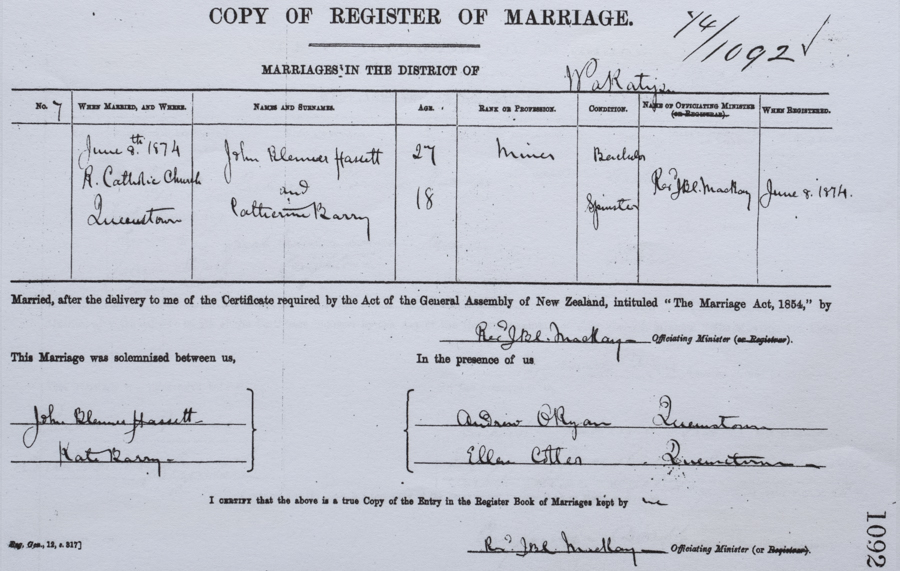 COPY OF REGISTER OF MARRIAGE.
74/1092 ✓
MARRIAGES IN THE DISTRICT OF Wakatipu
No. 7 WHEN MARRIED, AND WHERE. NAMES AND SURNAMES. AGE. RANK OR PROFESSION. CONDITION. NAME OF OFFICIATING MINISTER (or REGISTRAR). WHEN REGISTERED.
June 8th. 1874 John Blennerhassett 27 Miner Bachelor
R. Catholic Church and Revd J Bl. MacKay June 8. 1874.
Queenstown Catherine Barry 18 Spinster
Married, after the delivery to me of the Certificate required by the Act of the General Assembly of New Zealand, intituled "The Marriage Act, 1854," by
Revd J Bl. MacKay Officiating Minister (or Registrar).
This Marriage was solemnised between us, In the presence of us
John Blennerhassett Andrew O'Ryan Queenstown
Kate Barry Ellen Cotter Queenstown
I CERTIFY that the above is a true Copy of the Entry in the Register Book of Marriages kept by me
Reg. Gen., 12, s. 317]
Revd J Bl. MacKay Officiating Minister (or Registrar).
1092